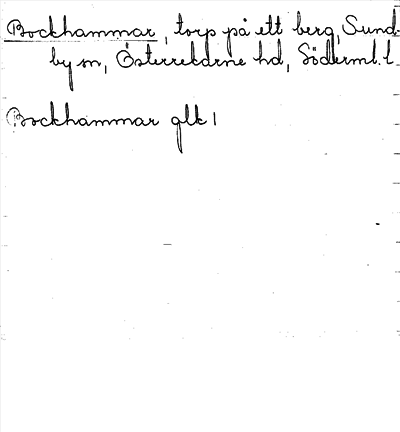 Bockhammar, torp på ett berg, Sund-
by sn, Österrekarne hd, Söderml. l.
Bockhammar glk 1